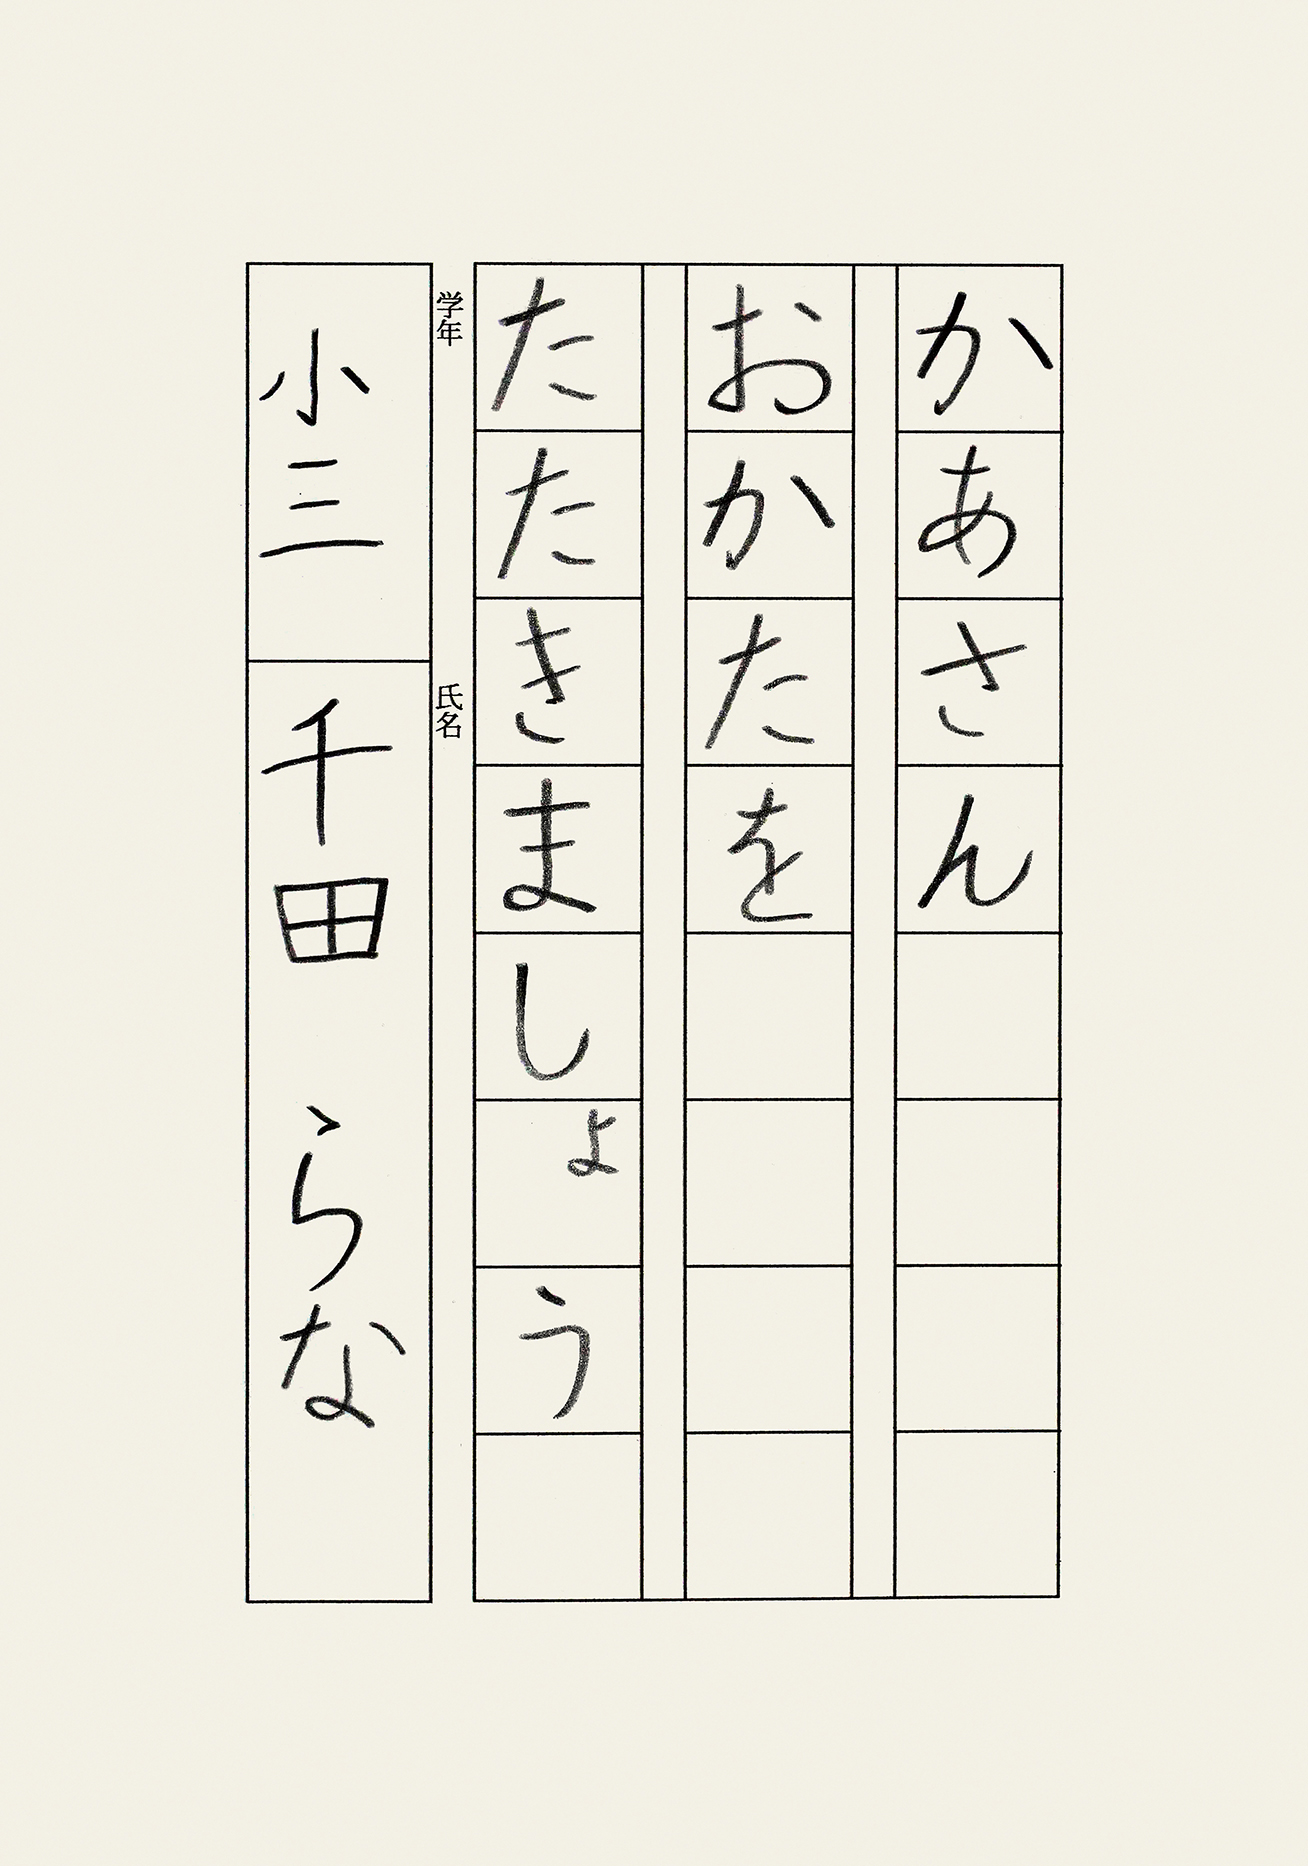 かあさん
おかたを
たたきましょう
学年
小三
氏名
千田 らな